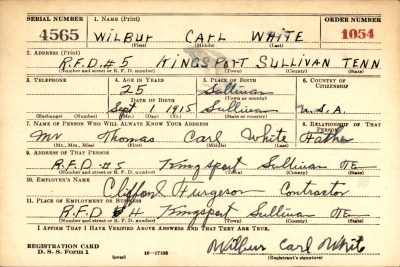 SERIAL NUMBER 1. NAME (Print) ORDER NUMBER
4565 WILBUR CARL WHITE 1054
(First) (Middle) (Last)
2. ADDRESS (Print)
R.F.D. #5 KINGSPORT SULLIVAN TENN
(Number and street or R. F. D. number) (Town) (County) (State)
3. TELEPHONE 4. AGE IN YEARS 5. PLACE OF BIRTH 6. COUNTRY OF CITIZENSHIP
25 Sullivan
DATE OF BIRTH (Town or county)
Sept 1 1915 Sullivan U.S.A.
(Exchange) (Number) (Mo.) (Day) (Yr.) (State or country)
7. NAME OF PERSON WHO WILL ALWAYS KNOW YOUR ADDRESS 8. RELATIONSHIP OF THAT PERSON
Mr Thomas Carl White Father
(Mr., Mrs., Miss) (First) (Middle) (Last)
9. ADDRESS OF THAT PERSON
R.F.D #5 Kingsport Sullivan TE
(Number and street or R. F. D. number) (Town) (County) (State)
10. EMPLOYER'S NAME
Clifford Contractor
11. PLACE OF EMPLOYMENT OR BUSINESS
R.F.D #4 Kingsport Sullivan TE
(Number and street or R. F. D. number) (Town) (County) (State)
I AFFIRM THAT I HAVE VERIFIED ABOVE ANSWERS AND THAT THEY ARE TRUE.
REGISTRATION CARD
D. S. S. Form 1 16—17105 Wilbur Carl White
(over) (Registrant's signature)